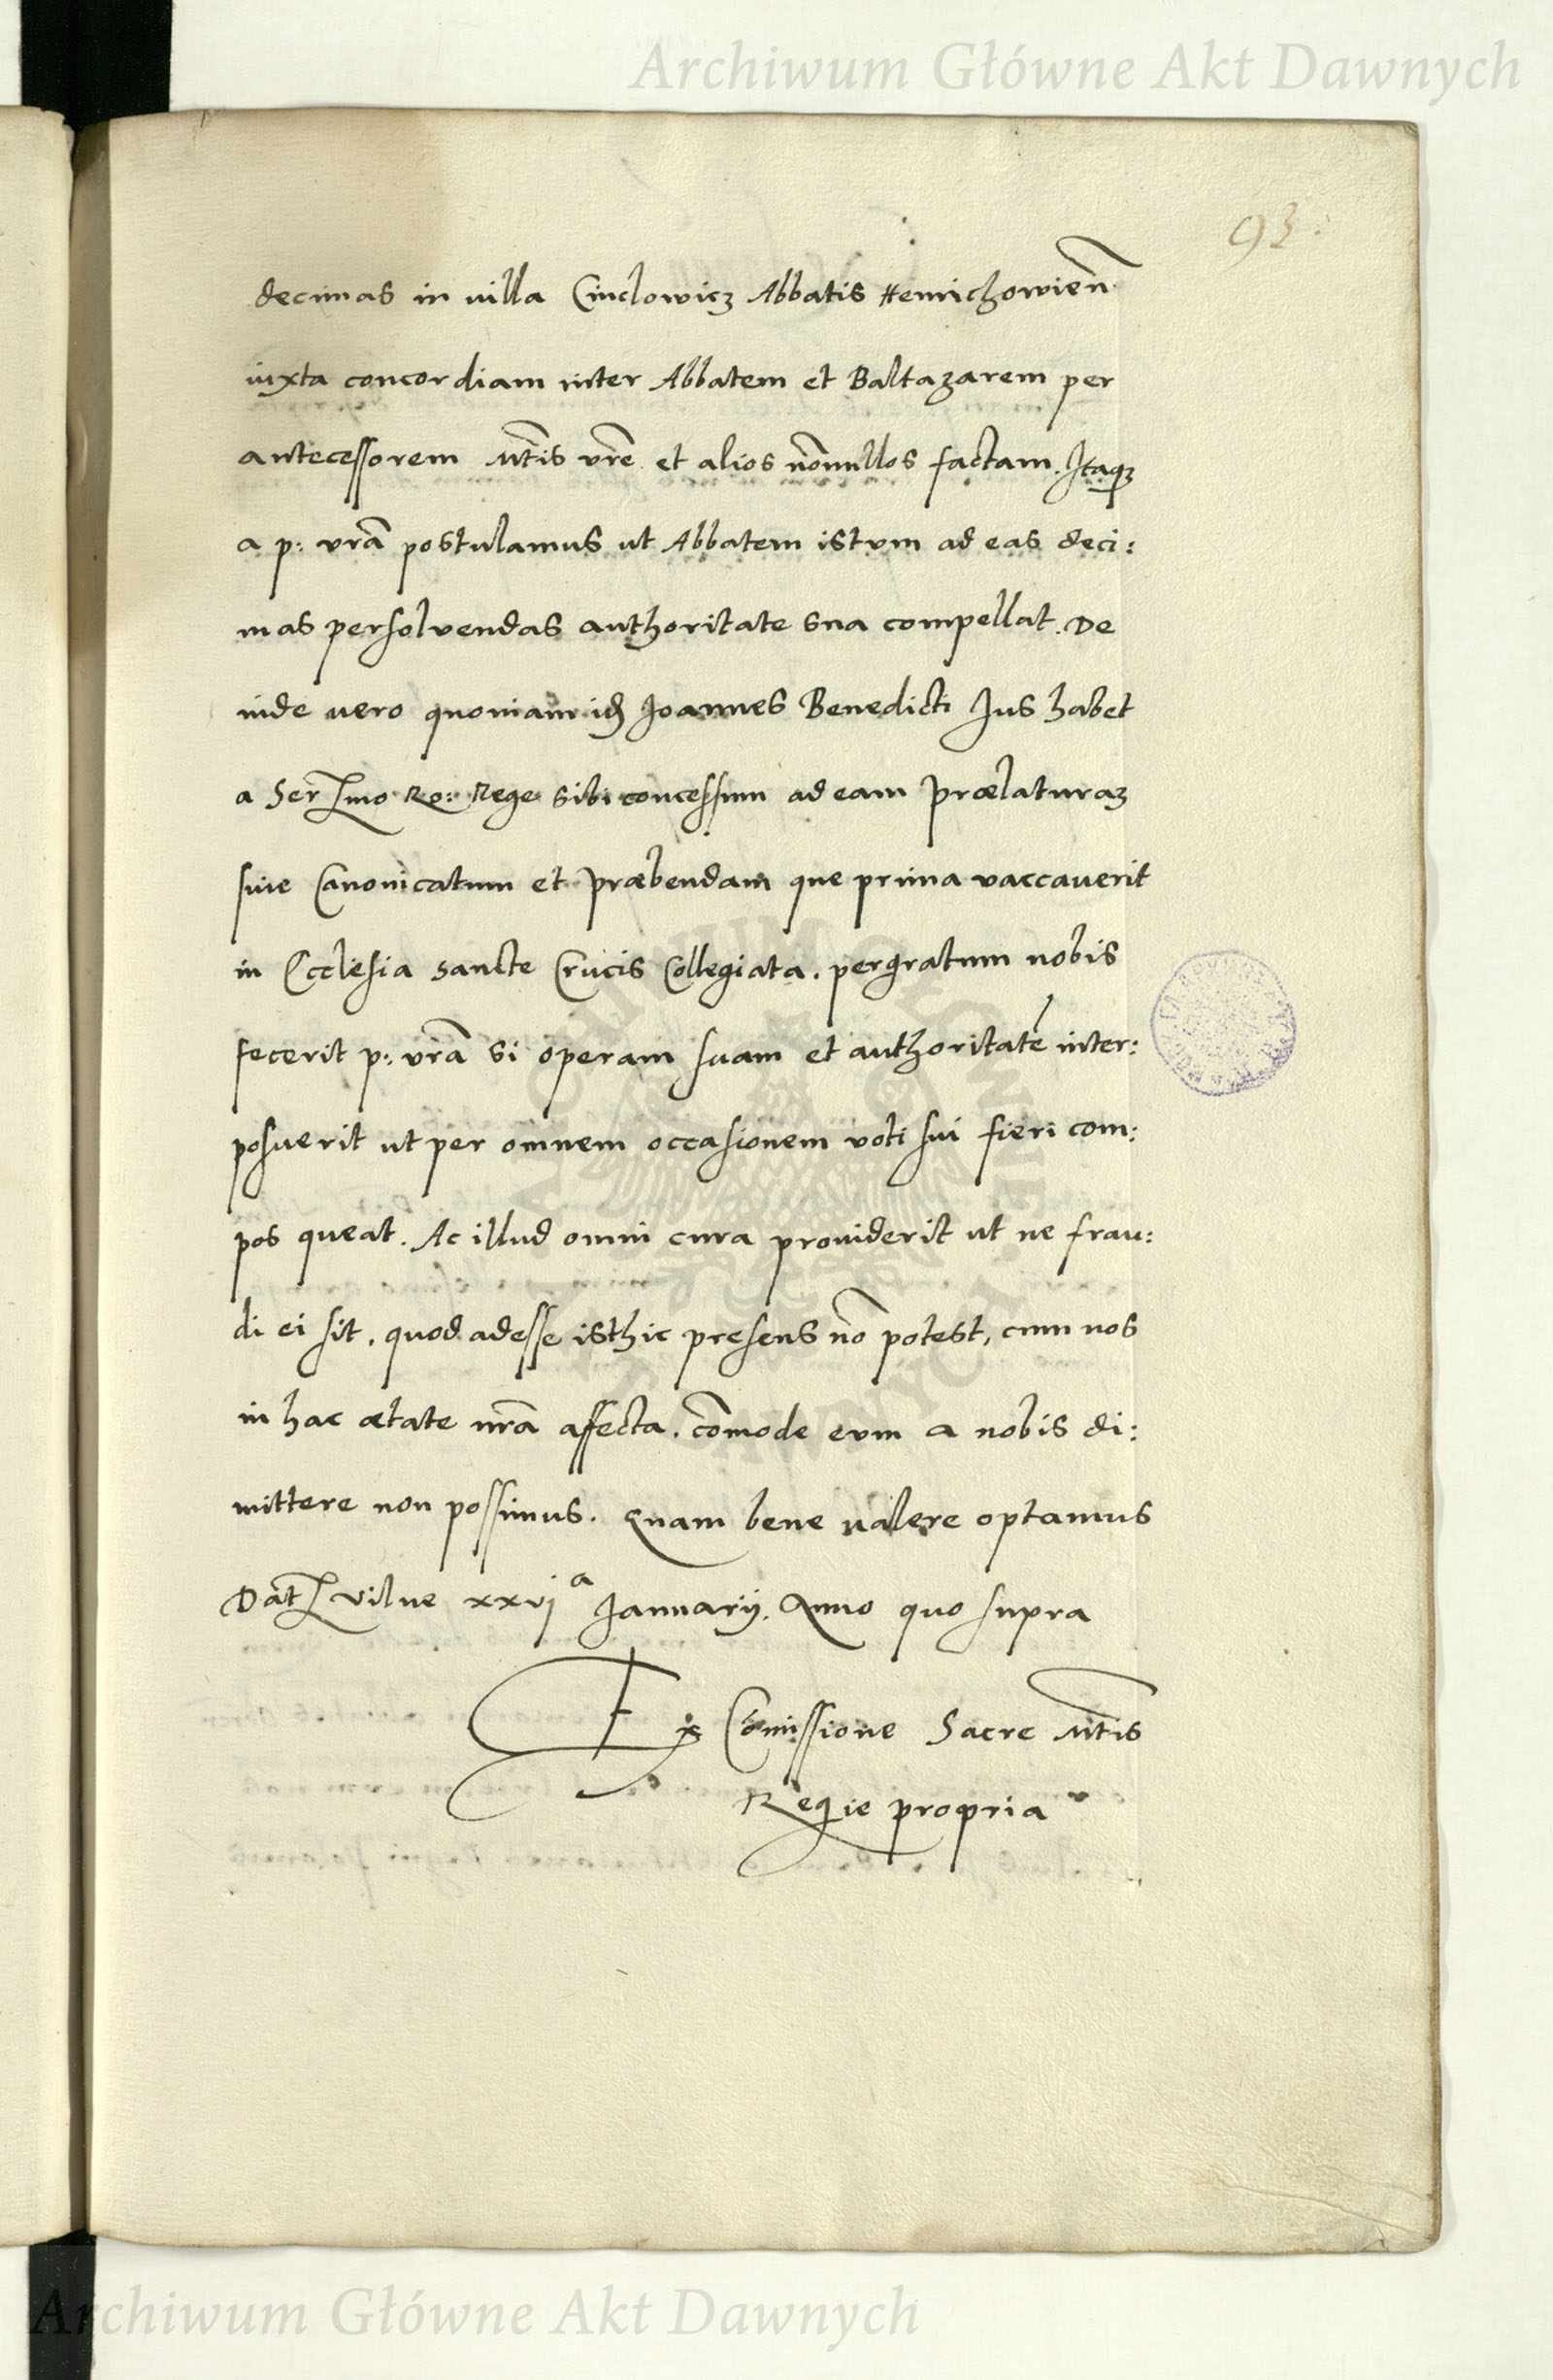 Archiwum Główne Akt Dawnych
93.
decimas in villa Cinclowicz Abbatis Henrichowien̄
iuxta concordiam inter Abbatem et Baltazarem per
antecessorem Mt̄is vr̄e et alios nōnullos factam. Itaq3
a p: vrā postulamus ut Abbatem istum ad eas deci:
mas persolvendas authoritate sua compellat. De
inde vero quoniam id Joannes Benedicti Jus habet
a Ser[mo Ro: Rege sibi concessum ad eam prælaturaz
sive Canonicatum et præbendam que prima vaccaverit
in Ecclesia sancte Crucis Collegiata. pergratum nobis
fecerit p: vrā si operam suam et authoritatē inter:
posuerit ut per omnem occasionem voti sui fieri com:
pos queat. Ac illud omni cura providerit ut ne frau:
di ei sit, quod adesse isthic presens nō potest, cum nos
in hac ætate nrā affecta. cōmode eum a nobis di:
mittere non possimus. Quam bene valere optamus
Dat̄ Vilne xxvj a Januarij. Anno quo supra
Ex Cōmissione Sacre Mt̄is
Regie propria
Archiwum Główne Akt Dawnych